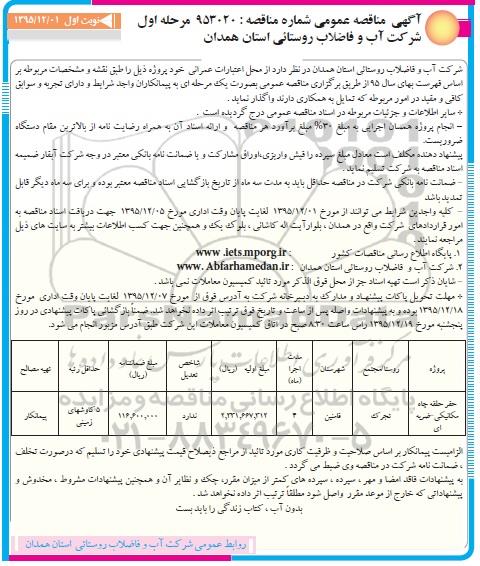 آگهی مناقصه عمومی شماره مناقصه : ۹۵۳۰۲۰ مرحله اول
نوبت اول ۱۳۹۵/۱۲/۰۱
شرکت آب و فاضلاب روستائی استان همدان
شرکت آب و فاضلاب روستائی استان همدان در نظر دارد از محل اعتبارات عمرانی خود پروژه ذیل را طبق نقشه و مشخصات مربوطه بر
اساس فهرست بهای سال ۹۵ از طریق برگزاری مناقصه عمومی بصورت یک مرحله ای به پیمانکاران واجد شرایط و دارای تجربه و سوابق
کافی و مفید در امور مربوطه که تمایل به همکاری دارند واگذار نماید .
÷ سایر اطلاعات و جزئیات مربوطه در اسناد مناقصه عمومی درج گردیده است .
– انجام پروژه همسان اجرایی به مبلغ ۳۰% مبلغ برآورد هر مناقصه و ارائه اسناد آن به همراه رضایت نامه از بالاترین مقام دستگاه
ضروریست.
پیشنهاد دهنده مکلف است معادل مبلغ سپرده را فیش واریزی،اوراق مشارکت و یا ضمانت نامه بانکی معتبر در وجه شرکت آبفار ضمیمه
اسناد مناقصه به شرکت تسلیم نماید .
– ضمانت نامه بانکی شرکت در مناقصه حداقل باید به مدت سه ماه از تاریخ بازگشایی اسناد مناقصه معتبر بوده و برای سه ماه دیگر قابل
تمدید باشد
– کلیه واجدین شرایط می توانند از مورخ ۱۳۹۵/۱۲/۰۱ لغایت پایان وقت اداری مورخ ۱۳۹۵/۱۲/۰۵ جهت دریافت اسناد مناقصه به
امور قراردادهای شرکت واقع در همدان ، بلوارآیت اله کاشانی ، بلوک یک و همچنین جهت کسب اطلاعات بیشتر به سایت های ذیل
مراجعه نمایند .
۱. پایگاه اطلاع رسانی مناقصات کشور : www.iets.mporg.ir
۲. شرکت آب و فاضلاب روستائی استان همدان : www.Abfarhamedan.ir
– شایان ذکر است تهیه اسناد جز از محل فوق الذکر مورد تائید کمیسیون معاملات نمی باشد .
÷ مهلت تحویل پاکات پیشنهاد و مدارک به دبیرخانه شرکت به آدرس فوق از مورخ ۱۳۹۵/۱۲/۰۷ لغایت پایان وقت اداری مورخ
۱۳۹۵/۱۲/۱۸ بوده و به پیشنهادات واصله پس از ساعت و تاریخ فوق ترتیب اثر داده نخواهد شد. ضمناً بازگشائی پاکات پیشنهادی در روز
پنجشنبه مورخ ۱۳۹۵/۱۲/۱۹ راس ساعت ۸.۳۰ صبح در اتاق کمیسیون معاملات این شرکت طبق آدرس مزبور انجام می شود.
پروژه | روستا/مجتمع | شهرستان | مدت اجرا (ماه) | مبلغ اولیه (ریال) | شاخص تعدیل | مبلغ ضمانتنامه (ریال) | حداقل رتبه | تهیه مصالح
حفر حلقه چاه مکانیکی-ضربه ای | تجرک | فامنین | ۴ | ۲,۳۳۱,۶۶۷,۳۱۲ | ندارد | ۱۱۶,۶۰۰,۰۰۰ | ۵ کاوشهای زمینی | پیمانکار
الزامیست پیمانکار بر اساس صلاحیت و ظرفیت کاری مورد تائید از مراجع ذیصلاح قیمت پیشنهادی خود را تسلیم که درصورت تخلف
، ضمانت نامه شرکت در مناقصه وی ضبط می گردد .
به پیشنهادات فاقد امضا و مهر ، سپرده ، سپرده های کمتر از میزان مقرر، چک و نظایر آن و همچنین پیشنهادات مشروط ، مخدوش و
پیشنهاداتی که خارج از موعد مقرر واصل شود مطلقا ترتیب اثر داده نخواهد شد .
بدون آب ، کتاب زندگی را باید بست
روابط عمومی شرکت آب و فاضلاب روستائی استان همدان
پایگاه اطلاع رسانی مناقصه و مزایده
۰۲۱-۸۸۳۴۹۶۷۰-۵